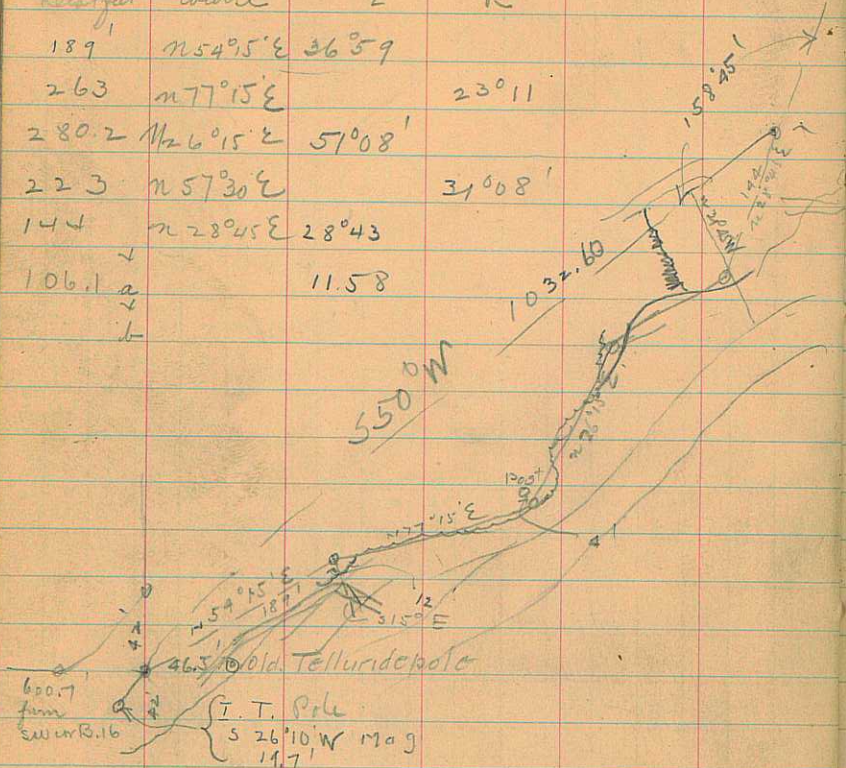 Course L R
189' N54°15'E 36°59
263 N77°15'E 23°11
280.2 N26°15'E 51°08'
223 N57°30'E 31°08'
144 N28°45E 28°43
106.1 a 11.58
b
158°45'
144
N28°45'E
N28°45W
1032.60
S50°W
N26°15'E
N77°15'E
N54°15'E
189'
12
S15°E
42'
46.5' Old Telluride pole
600.7'
from
SW cor B.16
42'
T. T. Pole
S 26°10'W Mag
19.7'